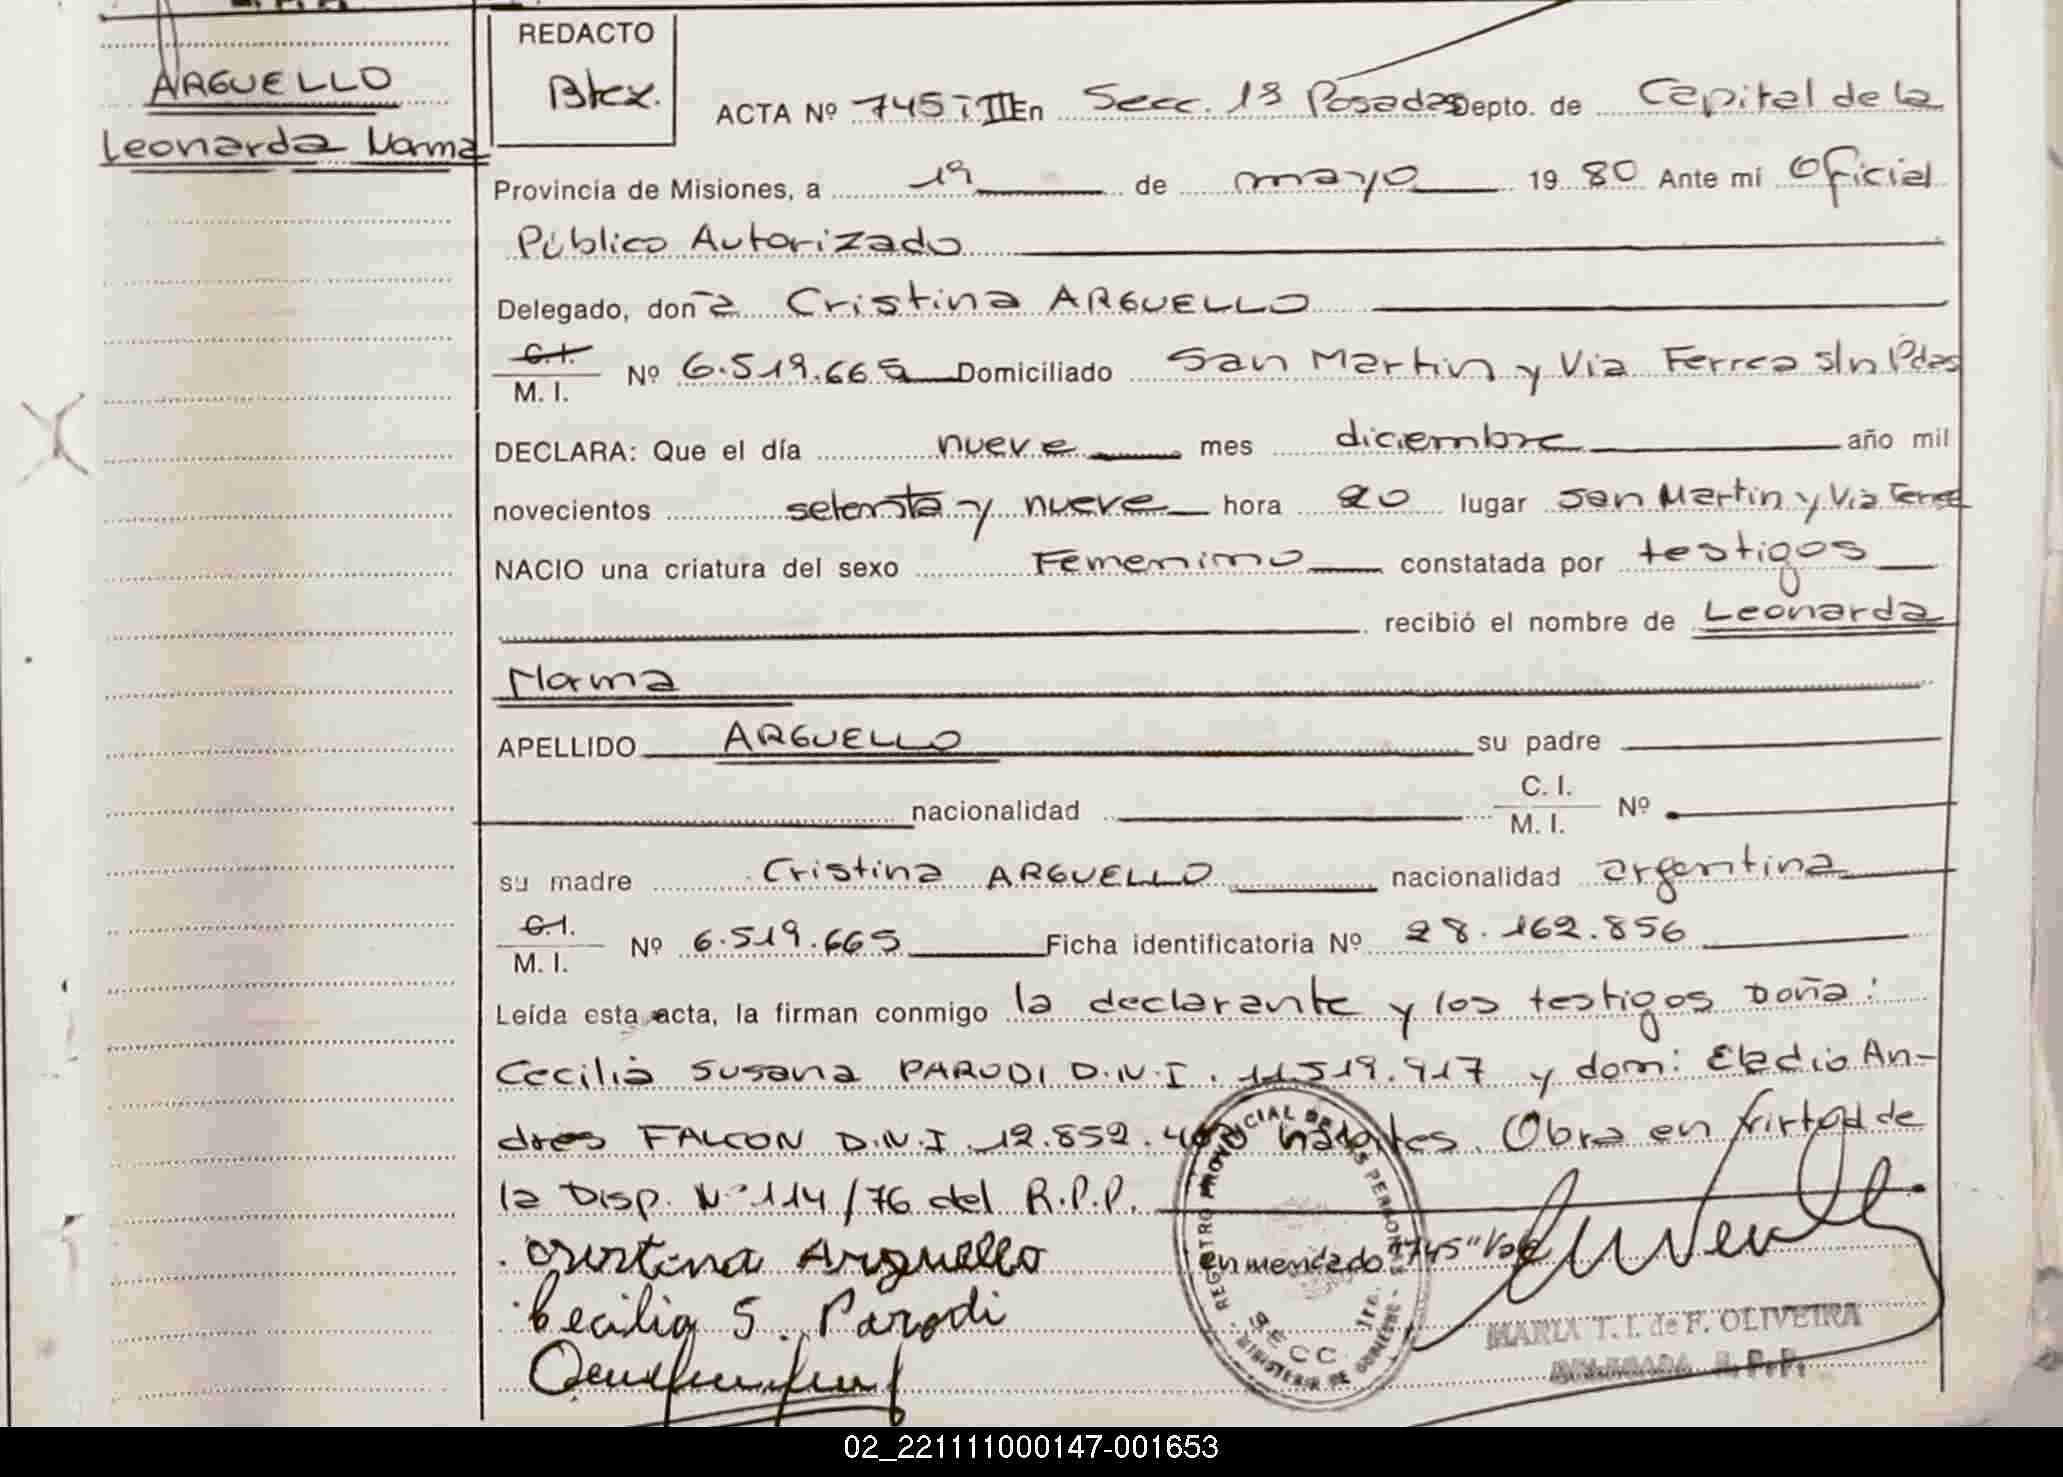 ARGUELLO
Leonarda Norma
REDACTO
Btex.
ACTA Nº 745 T III En Secc. 1ª Posadas Depto. de Capital de la
Provincia de Misiones, a 19 de mayo 19 80 Ante mí Oficial
Público Autorizado
Delegado, don a Cristina ARGUELLO
C.I. M. I. Nº 6.519.665 Domiciliado San Martin y Via Ferrea s/n Pdas
DECLARA: Que el día nueve mes diciembre año mil
novecientos setenta y nueve hora 20 lugar San Martin y Via Ferrea
NACIO una criatura del sexo Femenino constatada por testigos
recibió el nombre de Leonarda
Norma
APELLIDO ARGUELLO su padre
nacionalidad C. I. M. I. Nº
su madre Cristina ARGUELLO nacionalidad argentina
C.I. M. I. Nº 6.519.665 Ficha identificatoria Nº 28.162.856
Leída esta acta, la firman conmigo la declarante y los testigos Doña:
Cecilia Susana PARODI D.N.I. 11.519.917 y don: Eladio An-
dres FALCON D.N.I. 12.852. habites. Obra en virtud de
la Disp. Nº 114/76 del R.P.P.
Cristina Arguello
enmendado "745" Vale
Cecilia S. Parodi
REGISTRO PROVINCIAL DE LAS PERSONAS
SECC. 1ra.
MINISTERIO DE GOBIERNO
MARIA T. I. de F. OLIVEIRA
DELEGADA R. P. P.
02_221111000147-001653